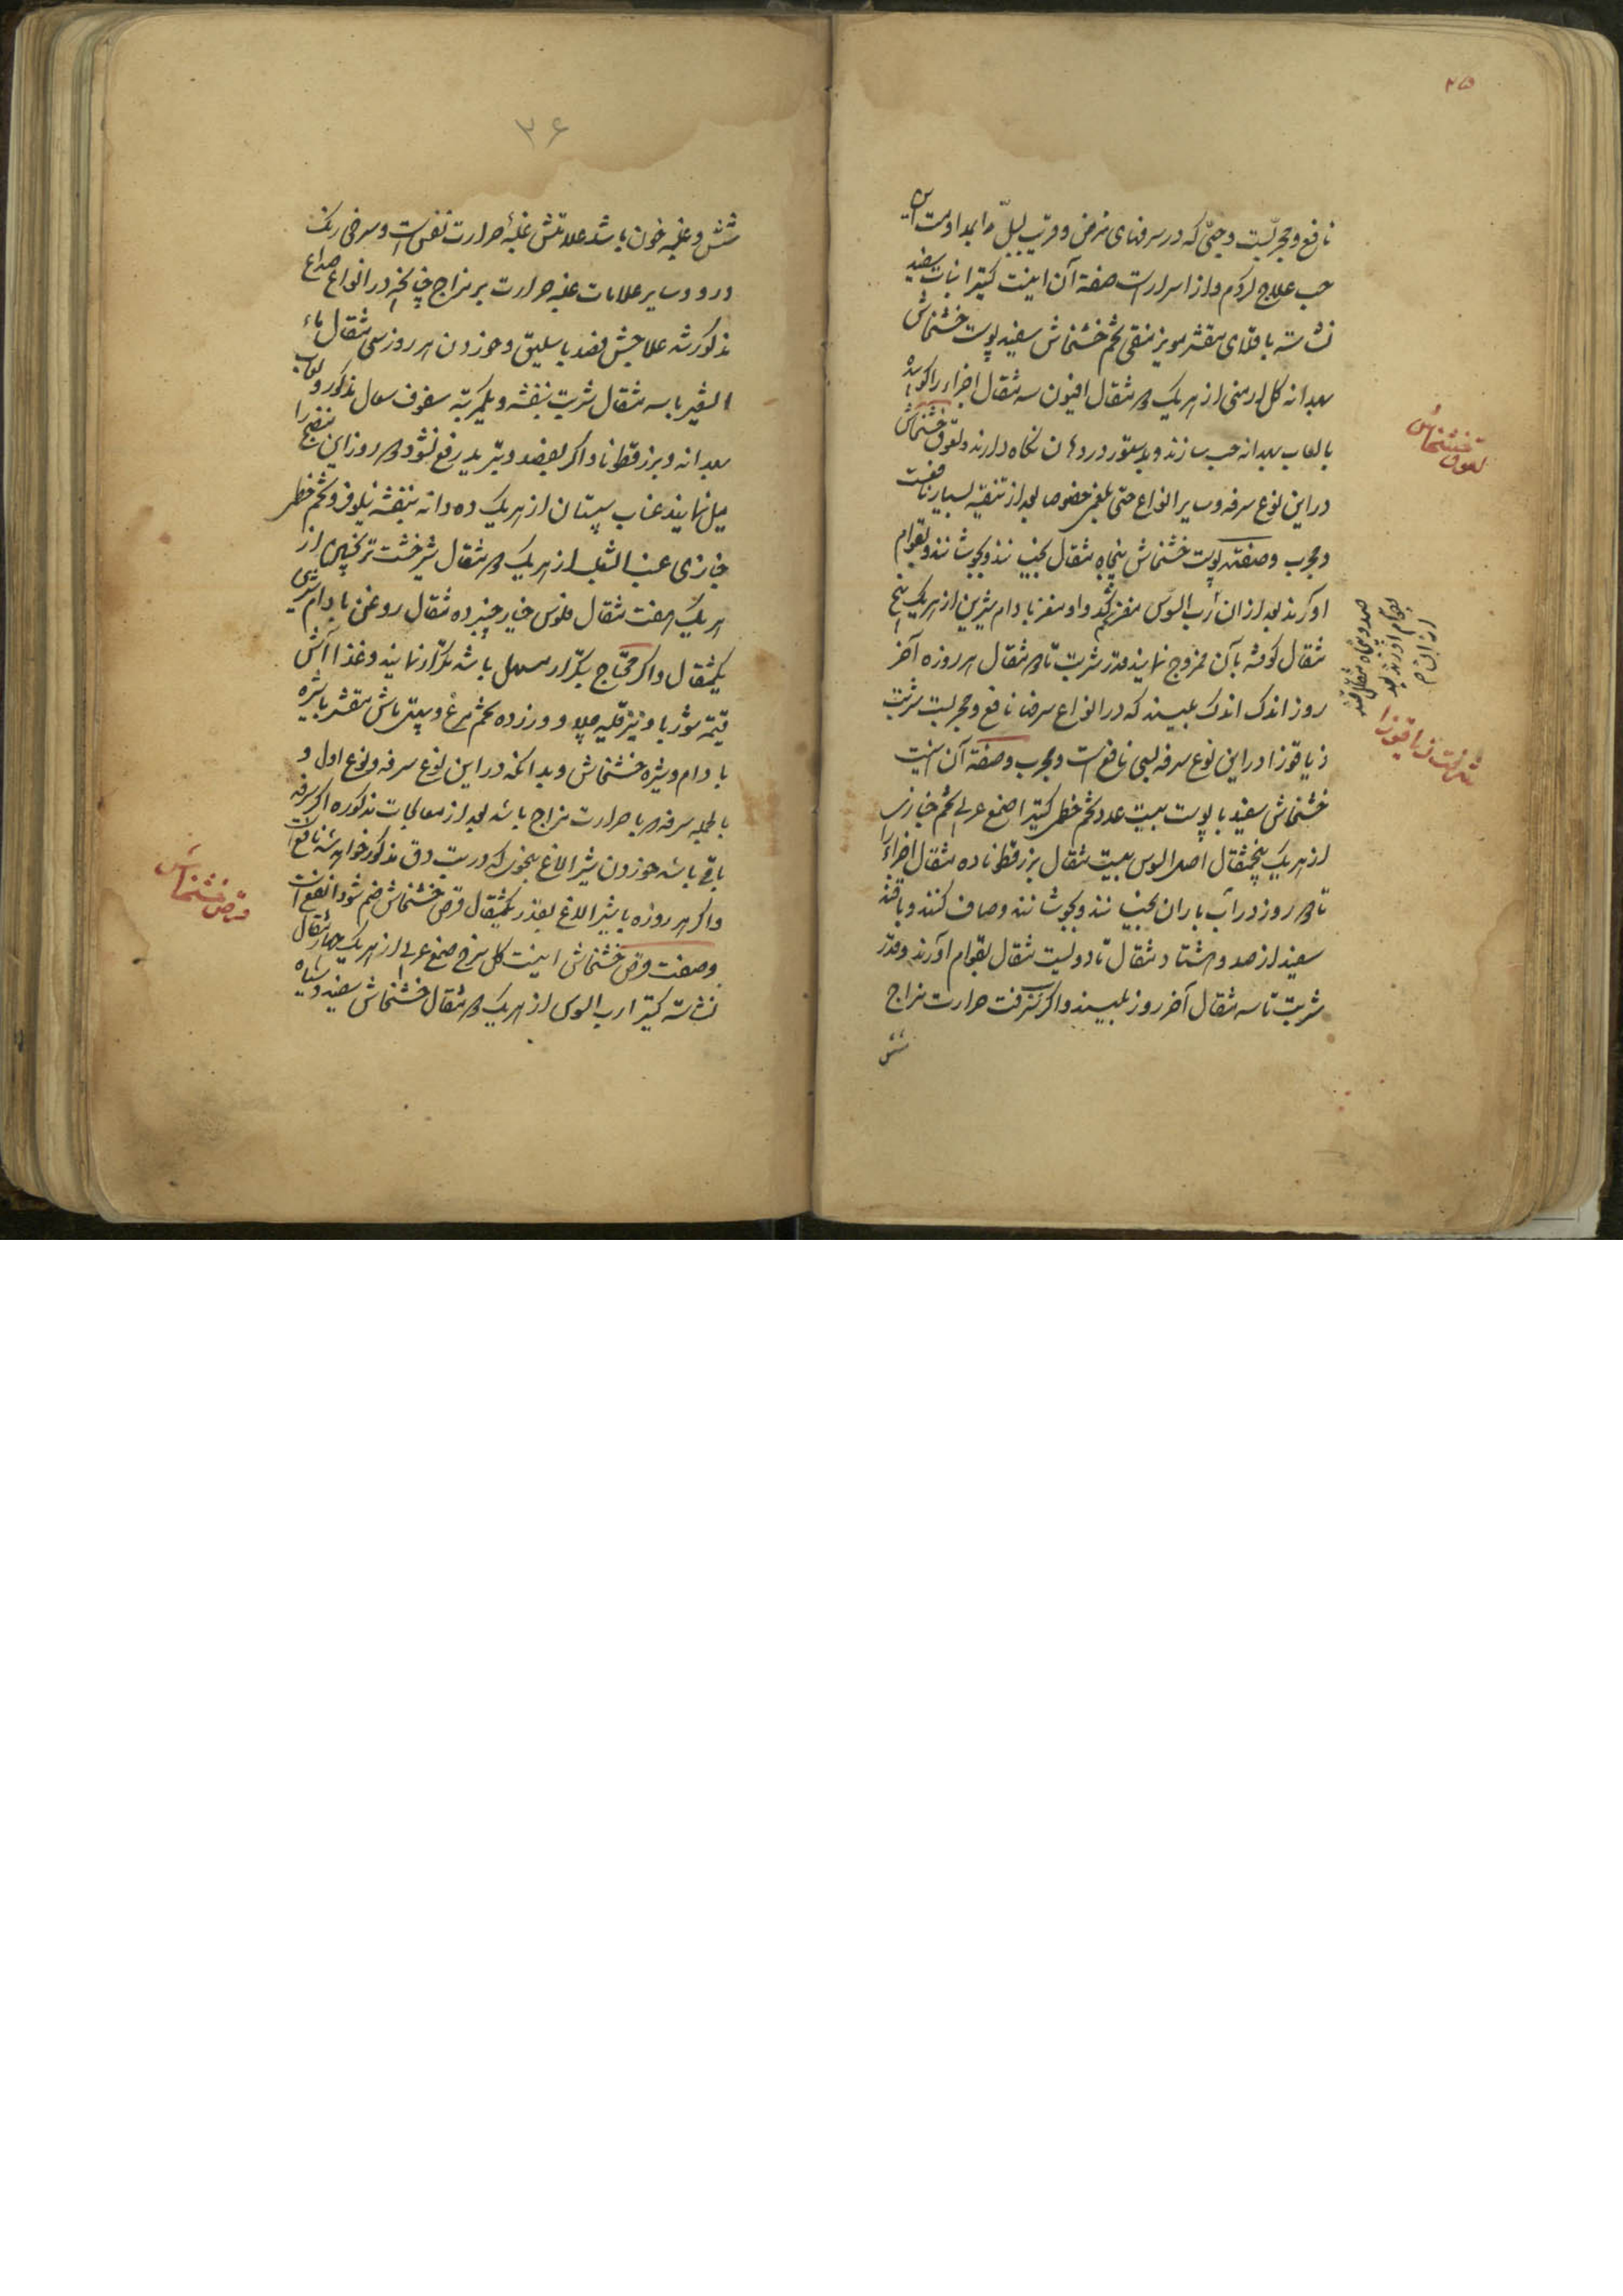 ۳۵
نافع و مجربست و حبّی که در سرفهای مزمن و قریب بسلّ مداومت این
حب علاج کردم و از اسرارست صفة آن اینست کتیرا نبات سفید
نشاسته باقلای مقشر مویز منقی تخم خشخاش سفید پوست خشخاش
بهدانه کل ارمنی از هریک دو مثقال افیون سه مثقال اجزاء را کوبیده
بالعاب بهدانه حب سازند و بدستور در دهان نکاه دارند و لعوق خشخاش
در این نوع سرفه و سایر انواع حتی بلغمی خصوصا بعد از تنقیه بسیار نافعست
و مجرب و صفته پوست خشخاش پنجاه مثقال بخیسانند و بجوشانند و بقوام
آورند بعد از ان رب السوس مغز تخم کدو و مغز بادام شیرین از هریک پنج
مثقال کوفته بآن ممزوج نمایند قدر شربت تا دو مثقال هر روزه آخر
روز اندک اندک بلیسند که در انواع سرفه نافع و مجربست شربت
ذیاقوزا در این نوع سرفه بسی نافع است و مجرب و صفة آن اینست
خشخاش سفید با پوست بیست عدد تخم خطمی کتیرا صمغ عربی تخم خبازی
از هریک پنجمثقال اصل السوس بیست مثقال بزرقطونا ده مثقال اجزاء را
تا دو روز در آب باران بخیسانند و بجوشانند و صاف کنند و با قند
سفید از صد و هشتاد مثقال تا دویست مثقال بقوام آورند و قدر
شربت تا سه مثقال آخر روز بلیسند و اکر نزفت حرارت مزاج
شش
لعوق خشخاش
صد و پنجاه مثقال قند
بقوام آورند بعد
از ان
شربت ذیاقوزا
۳۶
شش و غلبه خون باشد علامتش غلبهٔ حرارت نفس است و سرخی رنک
رو و سایر علامات غلبه حرارت بر مزاج چنانچه در انواع صداع
مذکور شد علاجش فصد باسلیق و خوردن هر روز سی مثقال ماء
الشعیر با سه مثقال شربت بنفشه و یکمرتبه سفوف سعال مذکور و لعاب
بهدانه و بزرقطونا و اکر بفصد و تبرید رفع نشود دو روز این منضج را
میل نمایند عناب سپستان از هریک ده دانه بنفشه نیلوفر و تخم خطمی
خبازی عنب الثعلب از هریک دو مثقال شیرخشت ترنجبین از
هریک هفت مثقال فلوس خیارچنبر ده مثقال روغن بادام شیرین
یکمثقال و اکر محتاج بتکرار مسهل باشد تکرار نمایند و غذا آش
قیمه شوربا و نیز قلیه چلاو و زرده تخم مرغ و پیتی ماش مقشر باشیره
بادام و شیره خشخاش و بدانکه در این نوع سرفه و نوع اول و
بالجمله سرفه که با حرارت مزاج باشد بعد از معالجات مذکوره اکر سرفه
باقی باشد خوردن شیر الاغ بنحوی که در تب دق مذکور خواهد شد نافع است
و اکر هر روزه با شیر الاغ بقدر یکمثقال قرص خشخاش ضم شود انفع است
و صفت قرص خشخاش اینست کل سرخ صمغ عربی از هریک چهار مثقال
نشاسته کتیرا رب السوس از هریک دو مثقال خشخاش سفید و سیاه
قرص خشخاش